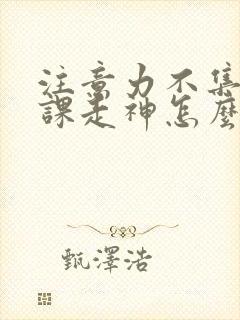 注意力不集
課走神怎麼
甄澤浩